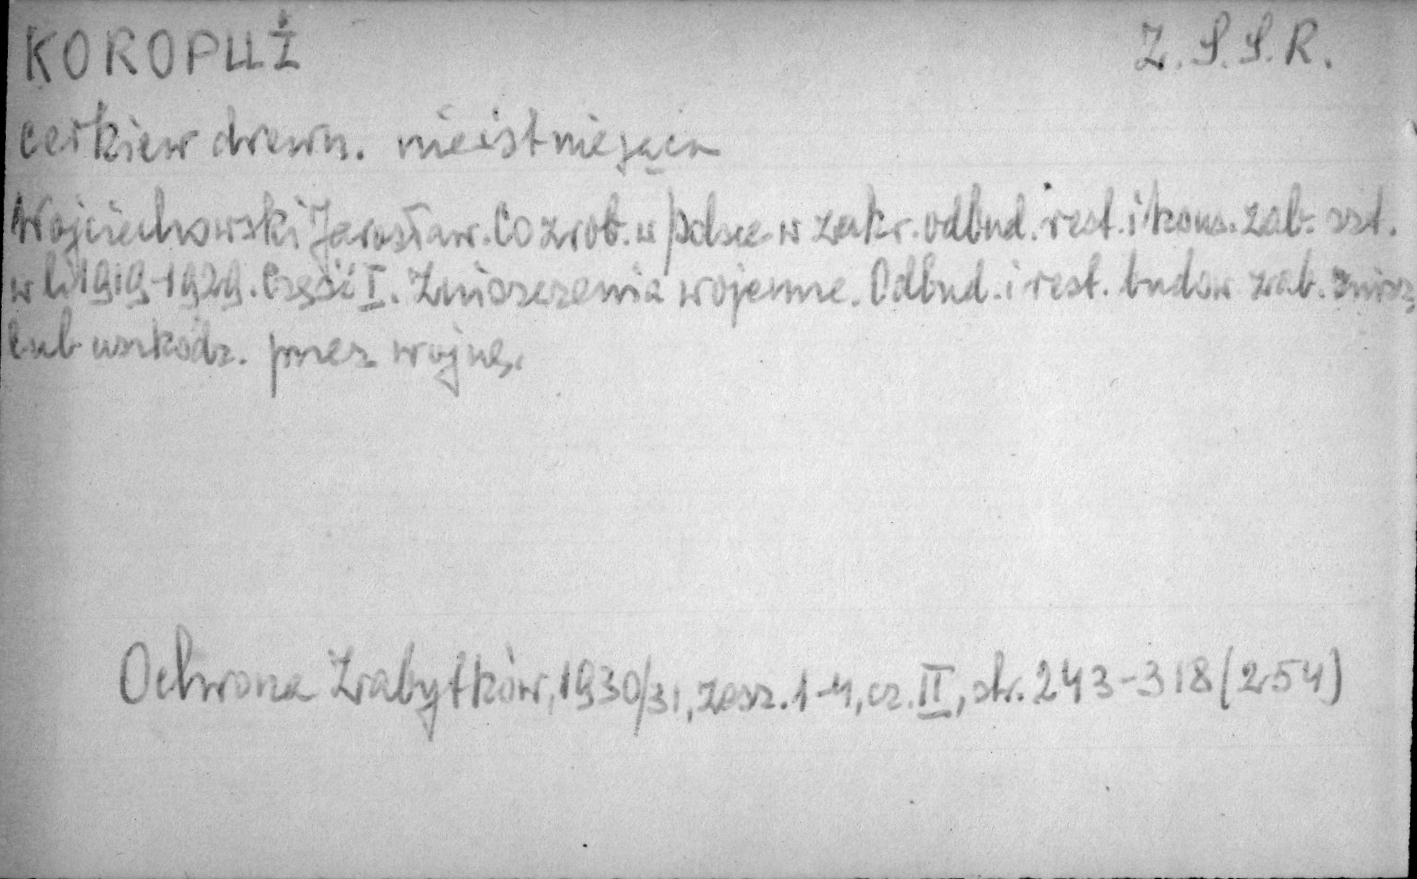 KOROPUŻ Z.S.S.R.
cerkiew drewn. nieistniejąca
Wojciechowski Jarosław. Co zrob. w Polsce w zakr. odbud. rest. i kons. zab. szt.
w l. 1919-1929. Część I. Zniszczenia wojenne. Odbud. i rest. budow zab. znisz.
lub uszkodz. przez wojnę.
Ochrona Zabytków, 1930/31, zesz. 1-4, cz. II, str. 243-318 (254)